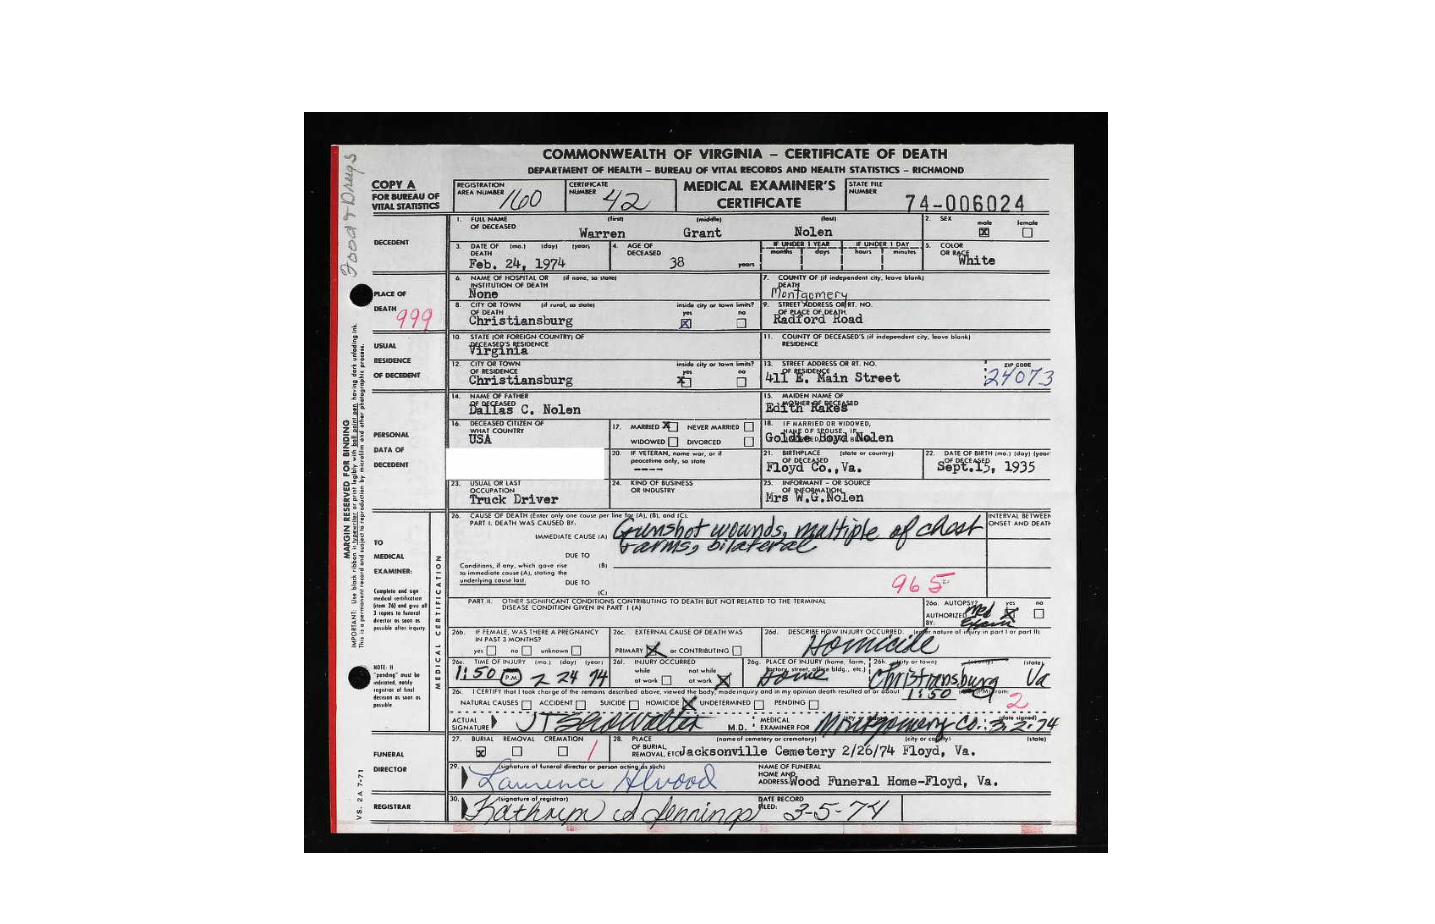 COMMONWEALTH OF VIRGINIA – CERTIFICATE OF DEATH
DEPARTMENT OF HEALTH – BUREAU OF VITAL RECORDS AND HEALTH STATISTICS – RICHMOND
Food & Drugs
COPY A
FOR BUREAU OF
VITAL STATISTICS
REGISTRATION
AREA NUMBER 160
CERTIFICATE
NUMBER 42
MEDICAL EXAMINER'S
CERTIFICATE
STATE FILE
NUMBER
74-006024
DECEDENT
1. FULL NAME (first) (middle) (last)
OF DECEASED
Warren Grant Nolen
2. SEX male female
3. DATE OF (mo.) (day) (year)
DEATH
Feb. 24, 1974
4. AGE OF
DECEASED
38 years
IF UNDER 1 YEAR IF UNDER 1 DAY
months days hours minutes
5. COLOR
OR RACE
White
PLACE OF
DEATH
999
6. NAME OF HOSPITAL OR (if none, so state)
INSTITUTION OF DEATH
None
7. COUNTY OF (if independent city, leave blank)
DEATH
Montgomery
8. CITY OR TOWN (if rural, so state) inside city or town limits?
OF DEATH yes no
Christiansburg
9. STREET ADDRESS OR RT. NO.
OF PLACE OF DEATH
Radford Road
USUAL
RESIDENCE
OF DECEDENT
10. STATE (OR FOREIGN COUNTRY) OF
DECEASED'S RESIDENCE
Virginia
11. COUNTY OF DECEASED'S (if independent city, leave blank)
RESIDENCE
12. CITY OR TOWN inside city or town limits?
OF RESIDENCE yes no
Christiansburg
13. STREET ADDRESS OR RT. NO. ZIP CODE
OF RESIDENCE
411 E. Main Street 24073
PERSONAL
DATA OF
DECEDENT
14. NAME OF FATHER
OF DECEASED
Dallas C. Nolen
15. MAIDEN NAME OF
MOTHER OF DECEASED
Edith Rakes
16. DECEASED CITIZEN OF
WHAT COUNTRY
USA
17. MARRIED NEVER MARRIED
WIDOWED DIVORCED
18. IF MARRIED OR WIDOWED,
NAME OF SPOUSE, IF
Goldie Boyd Nolen
20. IF VETERAN, name war, or if
peacetime only, so state
----
21. BIRTHPLACE (state or country)
OF DECEASED
Floyd Co.,Va.
22. DATE OF BIRTH (mo.) (day) (year)
OF DECEASED
Sept.15, 1935
23. USUAL OR LAST
OCCUPATION
Truck Driver
24. KIND OF BUSINESS
OR INDUSTRY
25. INFORMANT – OR SOURCE
OF INFORMATION
Mrs W.G.Nolen
MARGIN RESERVED FOR BINDING
IMPORTANT: Use black ribbon in typewriter or print legibly with ball point pen, having dark unfading ink.
This is a permanent record and subject to reproduction by microfilm and other photographic process.
MEDICAL CERTIFICATION
TO
MEDICAL
EXAMINER:
Complete and sign
medical certification
(item 26) and give all
3 copies to funeral
director as soon as
possible after inquiry.
NOTE: If
"pending" must be
indicated, notify
registrar of final
decision as soon as
possible
26. CAUSE OF DEATH (Enter only one cause per line for (A), (B), and (C).
PART I. DEATH WAS CAUSED BY:
INTERVAL BETWEEN
ONSET AND DEATH
IMMEDIATE CAUSE (A) Gunshot wounds, multiple of chest
+ arms, bilateral
DUE TO
Conditions, if any, which gave rise (B)
to immediate cause (A), stating the
underlying cause last. DUE TO
(C)
965
PART II. OTHER SIGNIFICANT CONDITIONS CONTRIBUTING TO DEATH BUT NOT RELATED TO THE TERMINAL
DISEASE CONDITION GIVEN IN PART I (A)
26a. AUTOPSY? yes no
AUTHORIZED
BY: Med Exam
26b. IF FEMALE, WAS THERE A PREGNANCY
IN PAST 3 MONTHS?
yes no unknown
26c. EXTERNAL CAUSE OF DEATH WAS
PRIMARY or CONTRIBUTING
26d. DESCRIBE HOW INJURY OCCURRED. (enter nature of injury in part I or part II)
Homicide
26e. TIME OF INJURY (mo.) (day) (year)
1:50 P.M. 2 24 74
26f. INJURY OCCURRED
while not while
at work at work
26g. PLACE OF INJURY (home, farm,
factory, street, office bldg., etc.)
Home
26h. (city or town) (county) (state)
Christiansburg Va
26i. I CERTIFY that I took charge of the remains described above, viewed the body, made inquiry and in my opinion death resulted at or about 1:50 (P.M.) from:
NATURAL CAUSES ACCIDENT SUICIDE HOMICIDE UNDETERMINED PENDING
2
ACTUAL
SIGNATURE JT Showalter M.D.
MEDICAL
EXAMINER FOR Montgomery Co. 3-2-74
(date signed)
FUNERAL
DIRECTOR
27. BURIAL REMOVAL CREMATION
1
28. PLACE (name of cemetery or crematory) (city or county) (state)
OF BURIAL,
REMOVAL, ETC. Jacksonville Cemetery 2/26/74 Floyd, Va.
29. (signature of funeral director or person acting as such)
NAME OF FUNERAL
HOME AND
ADDRESS: Wood Funeral Home-Floyd, Va.
REGISTRAR
30. (signature of registrar)
Kathryn S Jennings
DATE RECORD
FILED: 3-5-74
VS. 2A 7-71